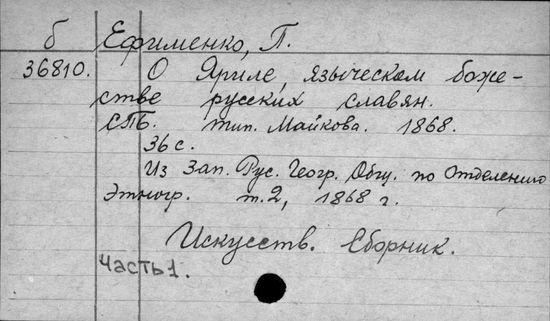 б Ефименко, П.
36810. О Яриле, языческом боже-
стве русских славян.
СПБ. тип. Майкова. 1868.
36 с.
Из Зап. Рус. Геогр. Общ. по Отделению
Этногр. т. 2, 1868 г.
Искусств. Сборник.
Часть 1.